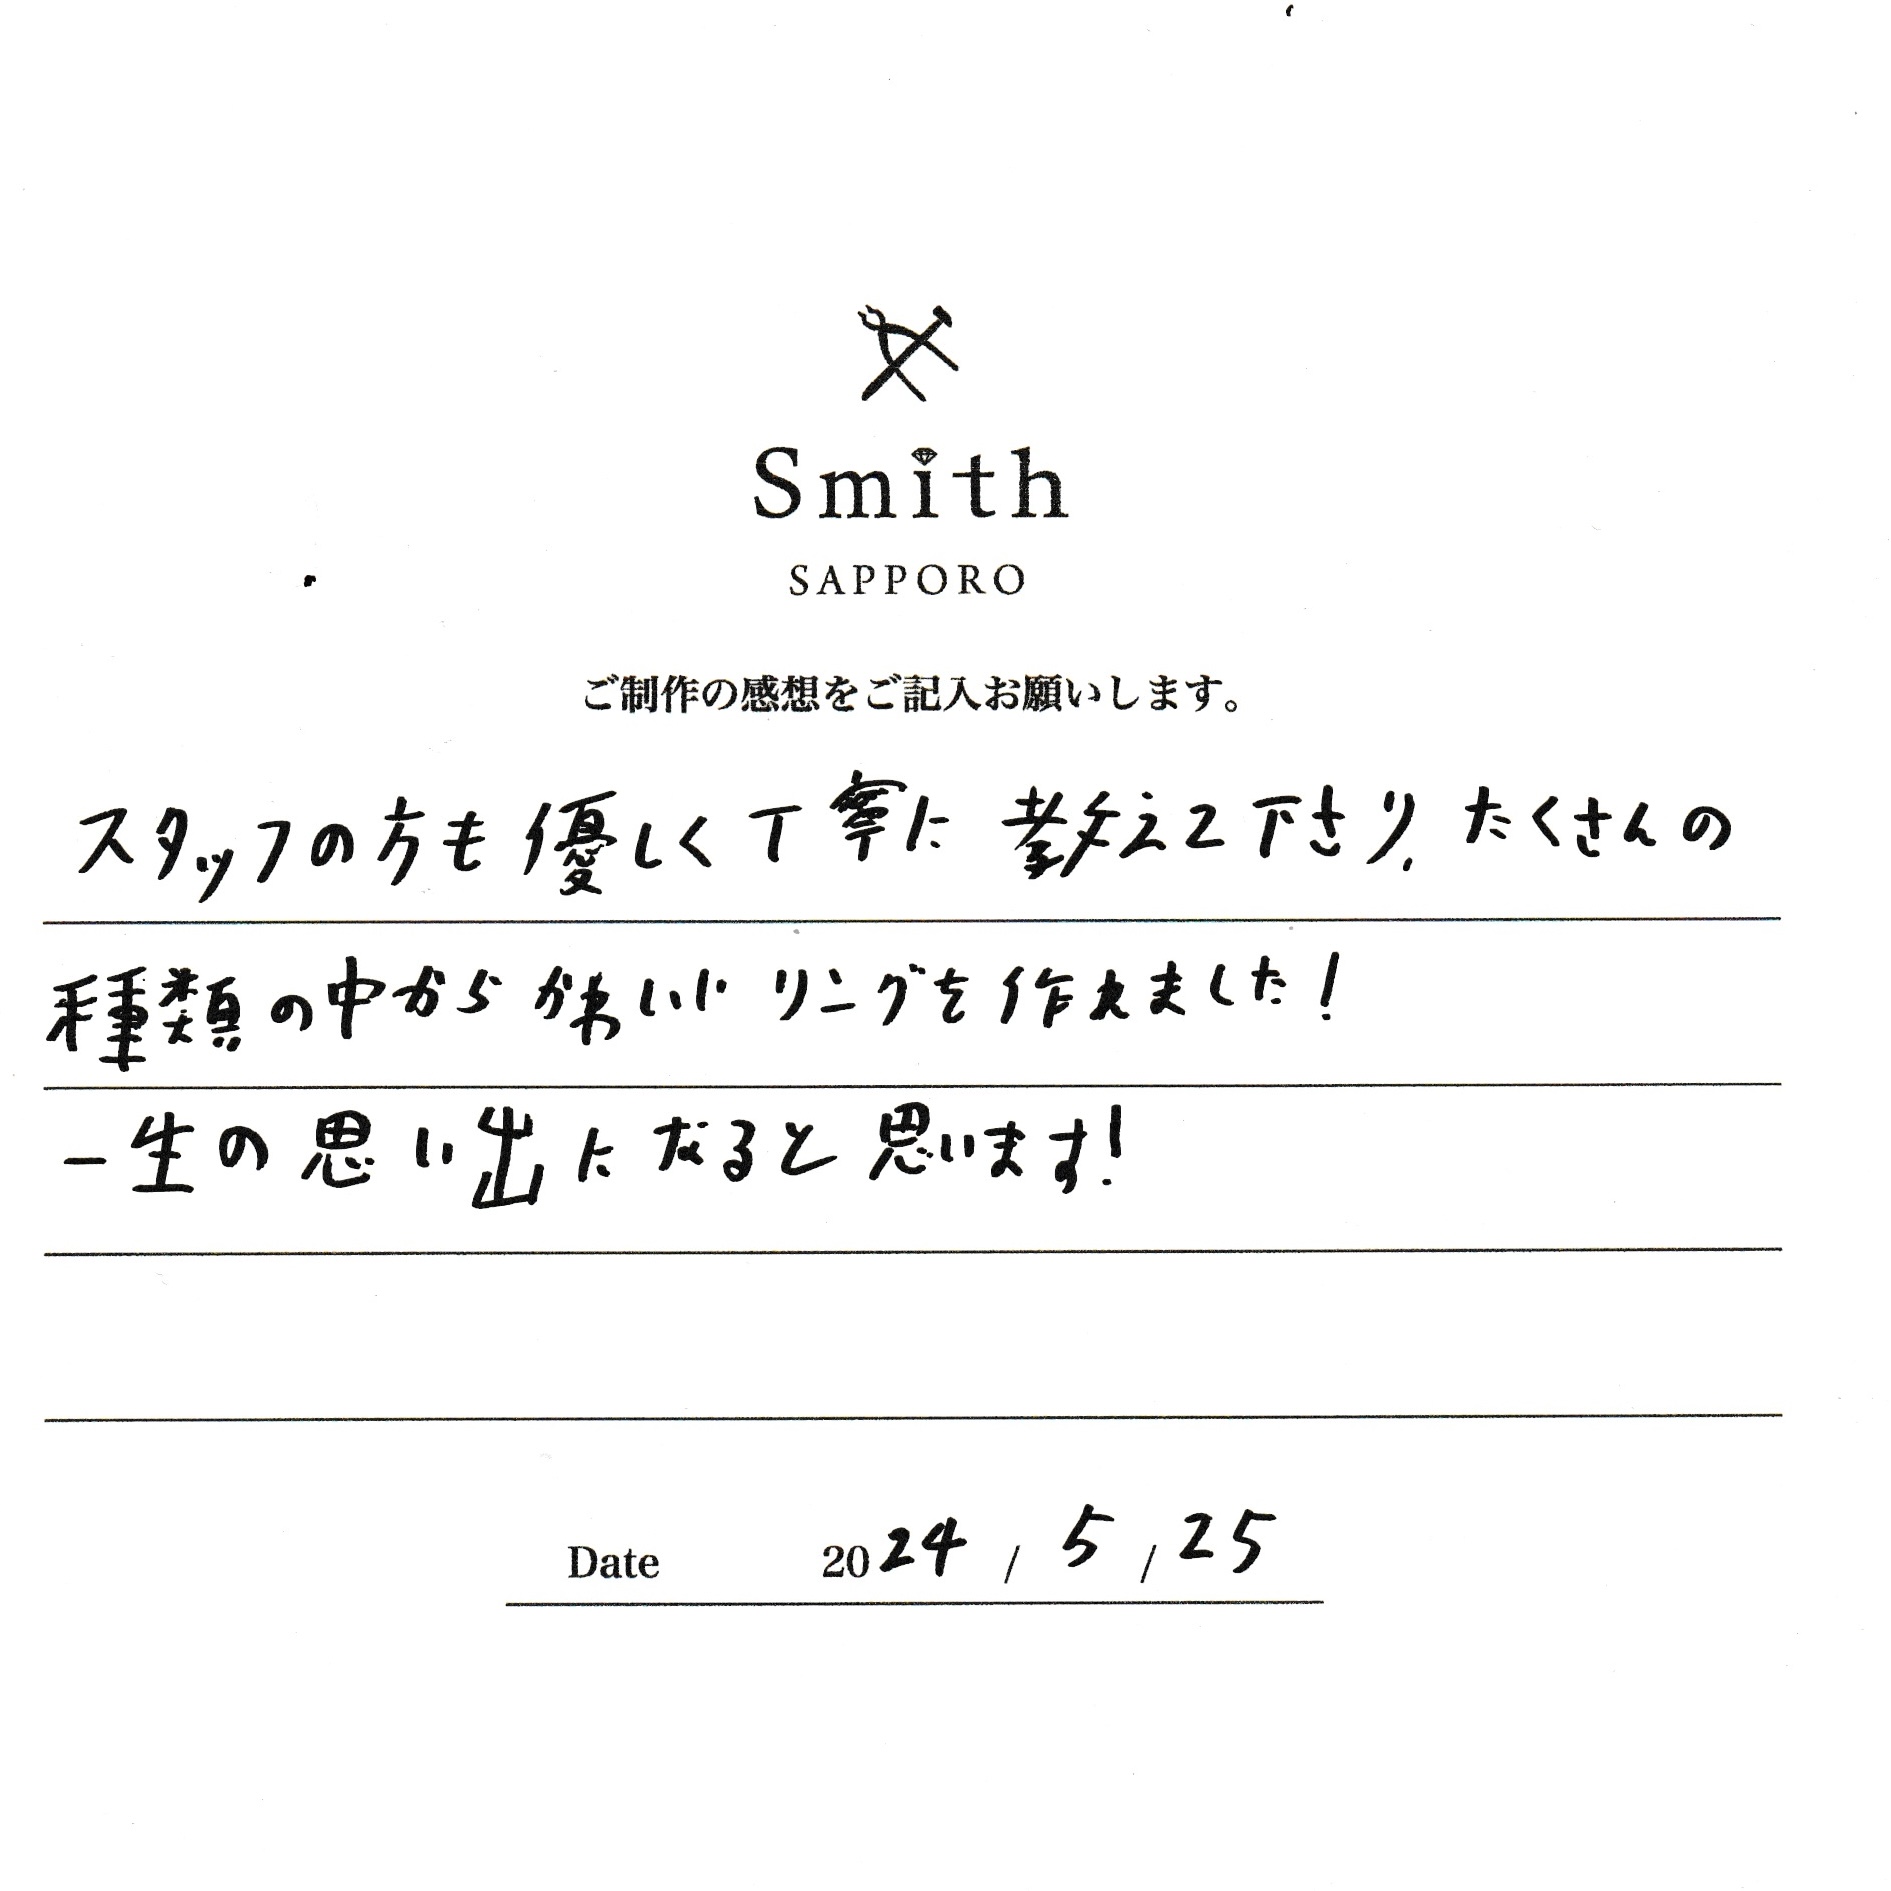 Smith
SAPPORO
ご制作の感想をご記入お願いします。
スタッフの方も優しく丁寧に教えて下さり、たくさんの
種類の中からかわいいリングを作れました!
一生の思い出になると思います!
Date 2024 / 5 / 25